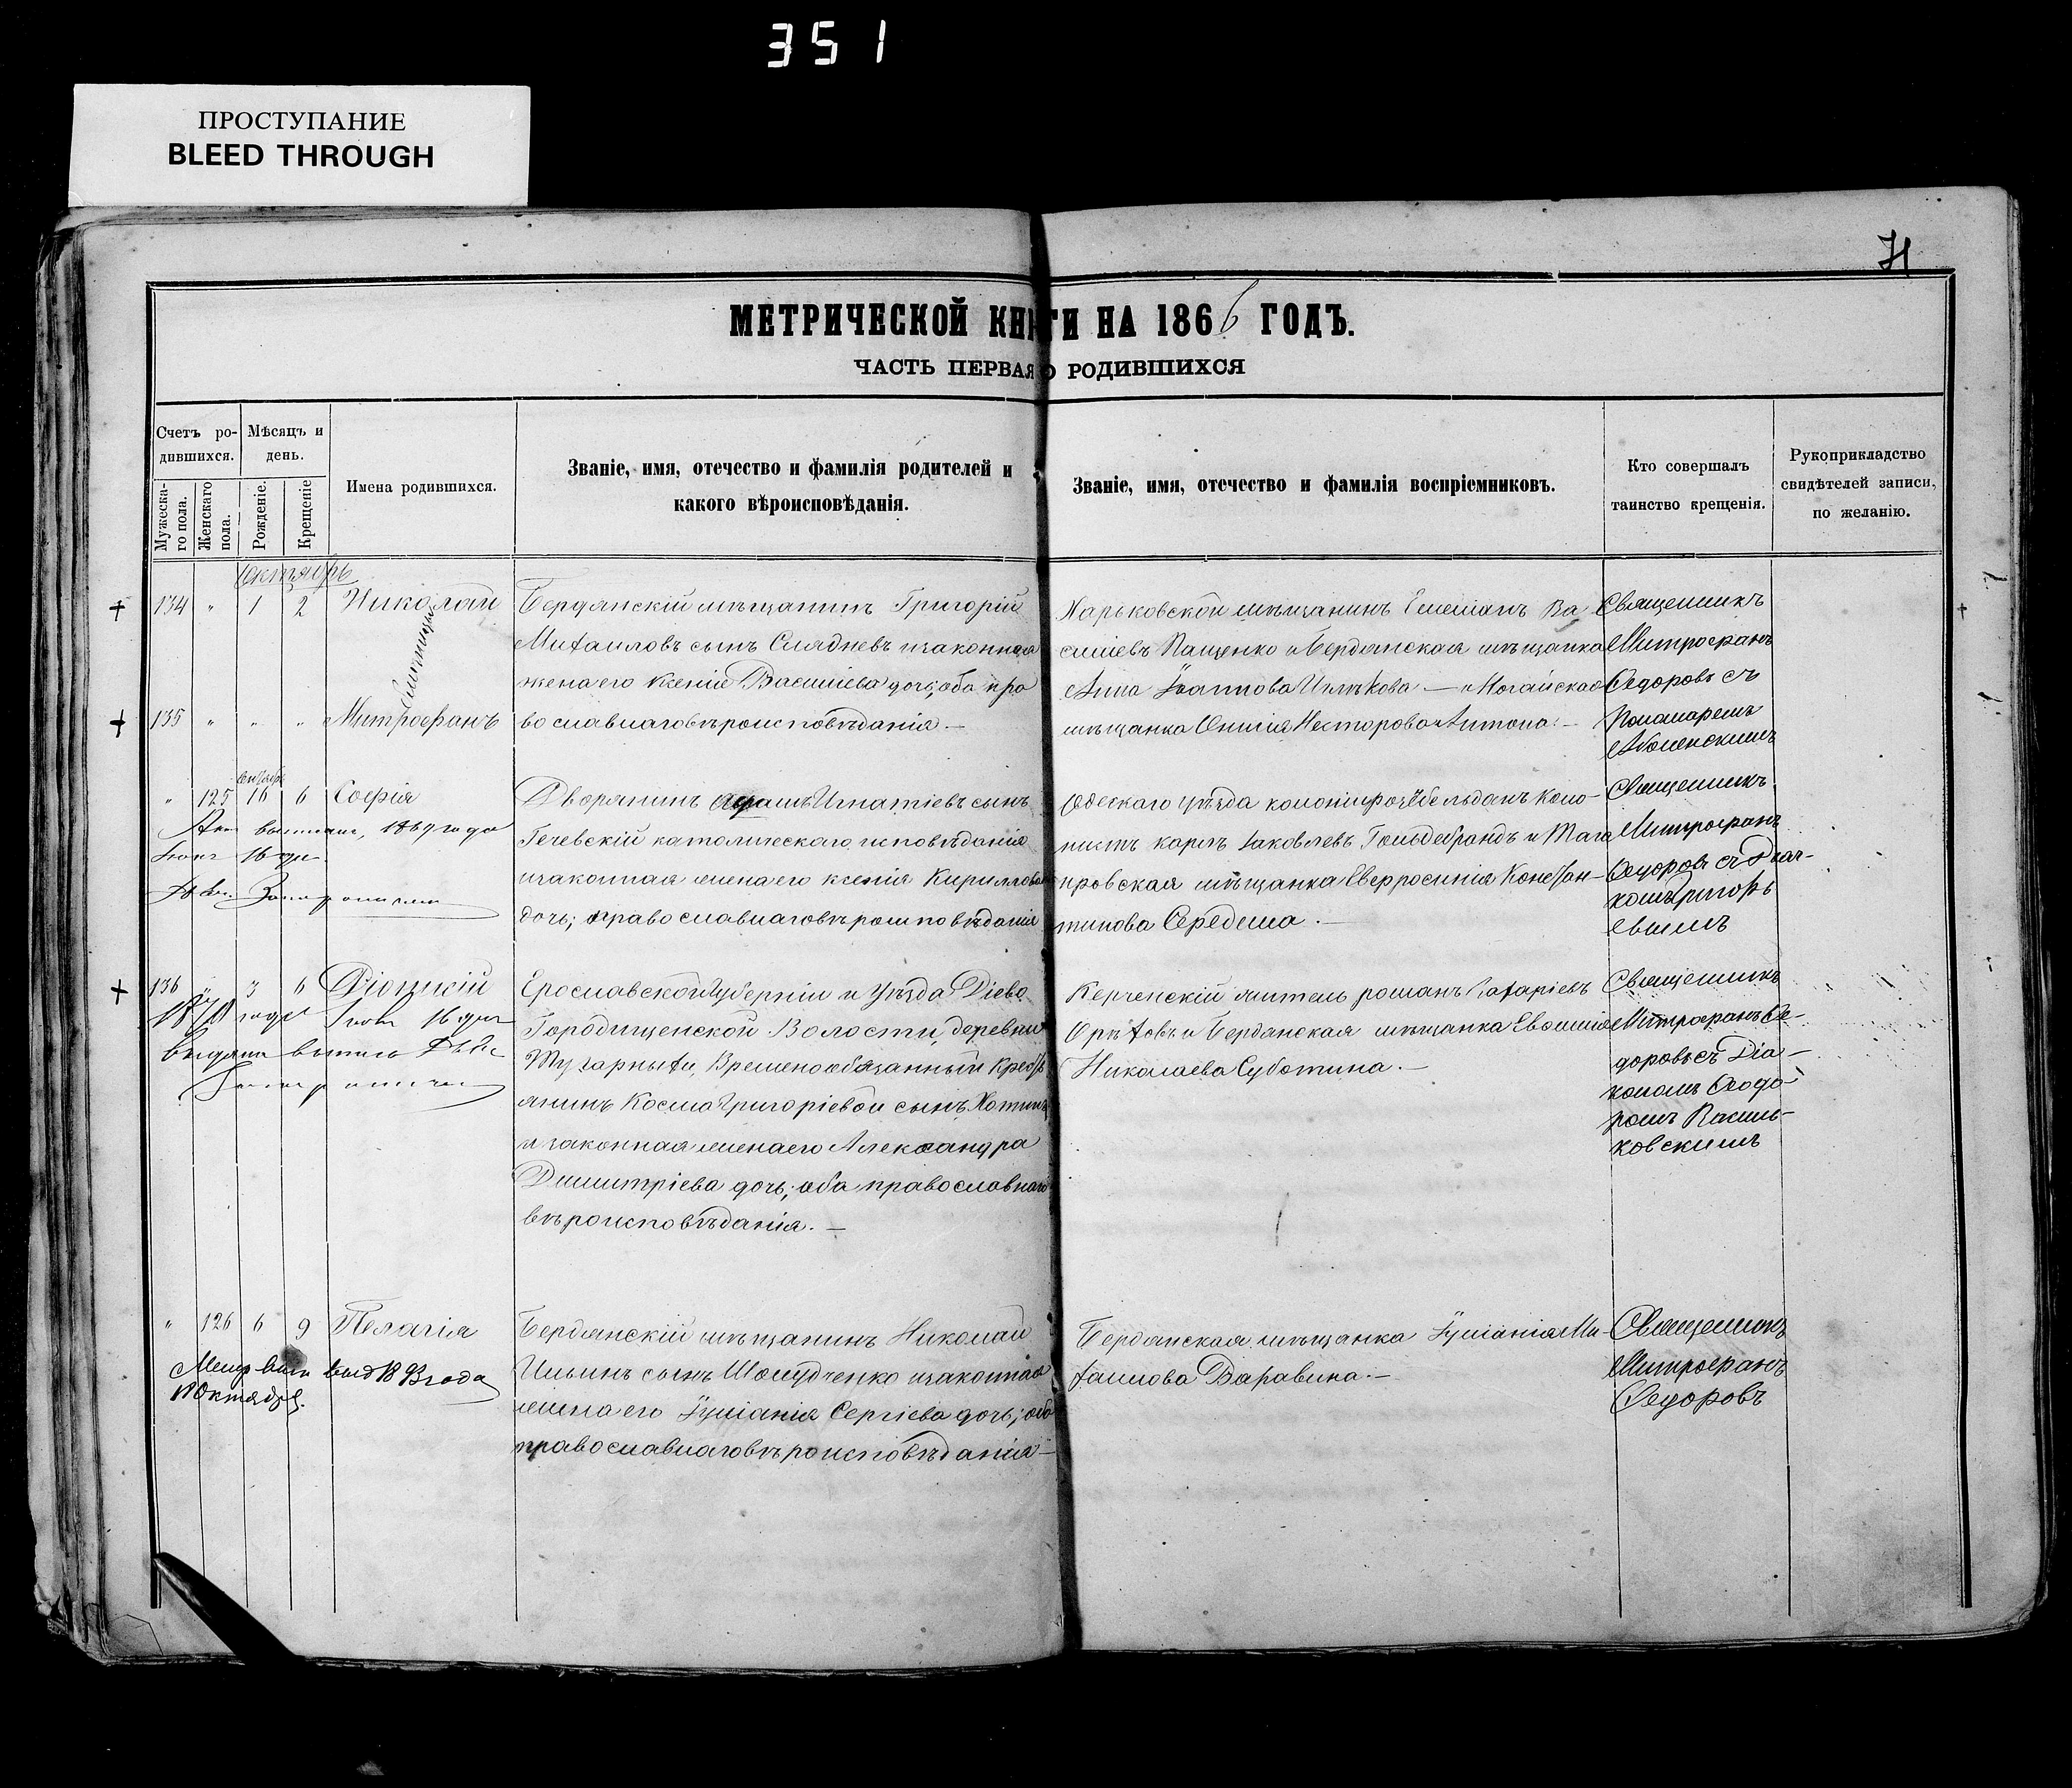 351
ПРОСТУПАНИЕ
BLEED THROUGH
МЕТРИЧЕСКОЙ КНИГИ НА 1866 ГОДЪ.
ЧАСТЬ ПЕРВАЯ О РОДИВШИХСЯ
Счетъ родившихся.
Мѣсяцъ и день.
Мужеска-го пола.
Женскаго пола.
Рожденіе.
Крещеніе
Имена родившихся.
Званіе, имя, отечество и фамилія родителей и
какого вѣроисповѣданія.
Званіе, имя, отечество и фамилія воспріемниковъ.
Кто совершалъ
таинство крещенія.
Рукоприкладство
свидѣтелей записи,
по желанію.
Октябрь
134 " 1 2 Николай
135 " " " Митрофанъ
Бердянскій мѣщанинъ Григорій
Михаиловъ сынъ Слядневъ и законная
жена его Ксенія Василіева дочь; оба пра
вославнаго вѣроисповѣданія. —
Харьковской мѣщанинъ Емеліанъ Ва
силіевъ Пащенко и Бердянская мѣщанка
Анна Іоаннова — и Ногайская
мѣщанка Несторова Антона. —
Священникъ
Митрофанъ
Ѳедоровъ съ
Пономаремъ
" 125 16 6 Софія
1869 года
16 дня
Дворянинъ Адамъ Игнатіевъ сынъ
католическаго исповѣданія
и законная жена его Ксенія Кириллова
дочь; православнаго вѣроисповѣданія
Одескаго уѣзда колоніи коло-
нистъ Карлъ Іаковлевъ Гольдебрандъ и Таган
ровская мѣщанка Евфросинія Констан-
тинова Середина. —
Священникъ
Митрофанъ
Ѳедоровъ съ Діа-
кономъ Григорь
евымъ
136 " 3 6 Діонисій
1870 года Іюня 16 дня
Ерославской Губерніи и Уѣзда Діево
Городищенской Волости, деревни
Временообязанный Кресть
янинъ Косма Григоріевъ сынъ
и законная жена его Александра
Димитріева дочь; оба православнаго
вѣроисповѣданія. —
Керченскій житель Романъ Захаріевъ
Орѣховъ и Бердянская мѣщанка Евфимія
Николаева Суботина. —
Священникъ
Митрофанъ Ѳе-
доровъ съ Діа-
кономъ Ѳеодо-
ромъ Василь-
ковскимъ
" 126 6 9 Пелагія
Метр. выпись выд 1893 года
18 Октября.
Бердянскій мѣщанинъ Николай
Ильинъ сынъ и законная
жена его Іуліанія Сергіева дочь; оба
православнаго вѣроисповѣданія —
Бердянская мѣщанка Іуліанія Ми-
хаилова Варавина. —
Священникъ
Митрофанъ
Ѳедоровъ